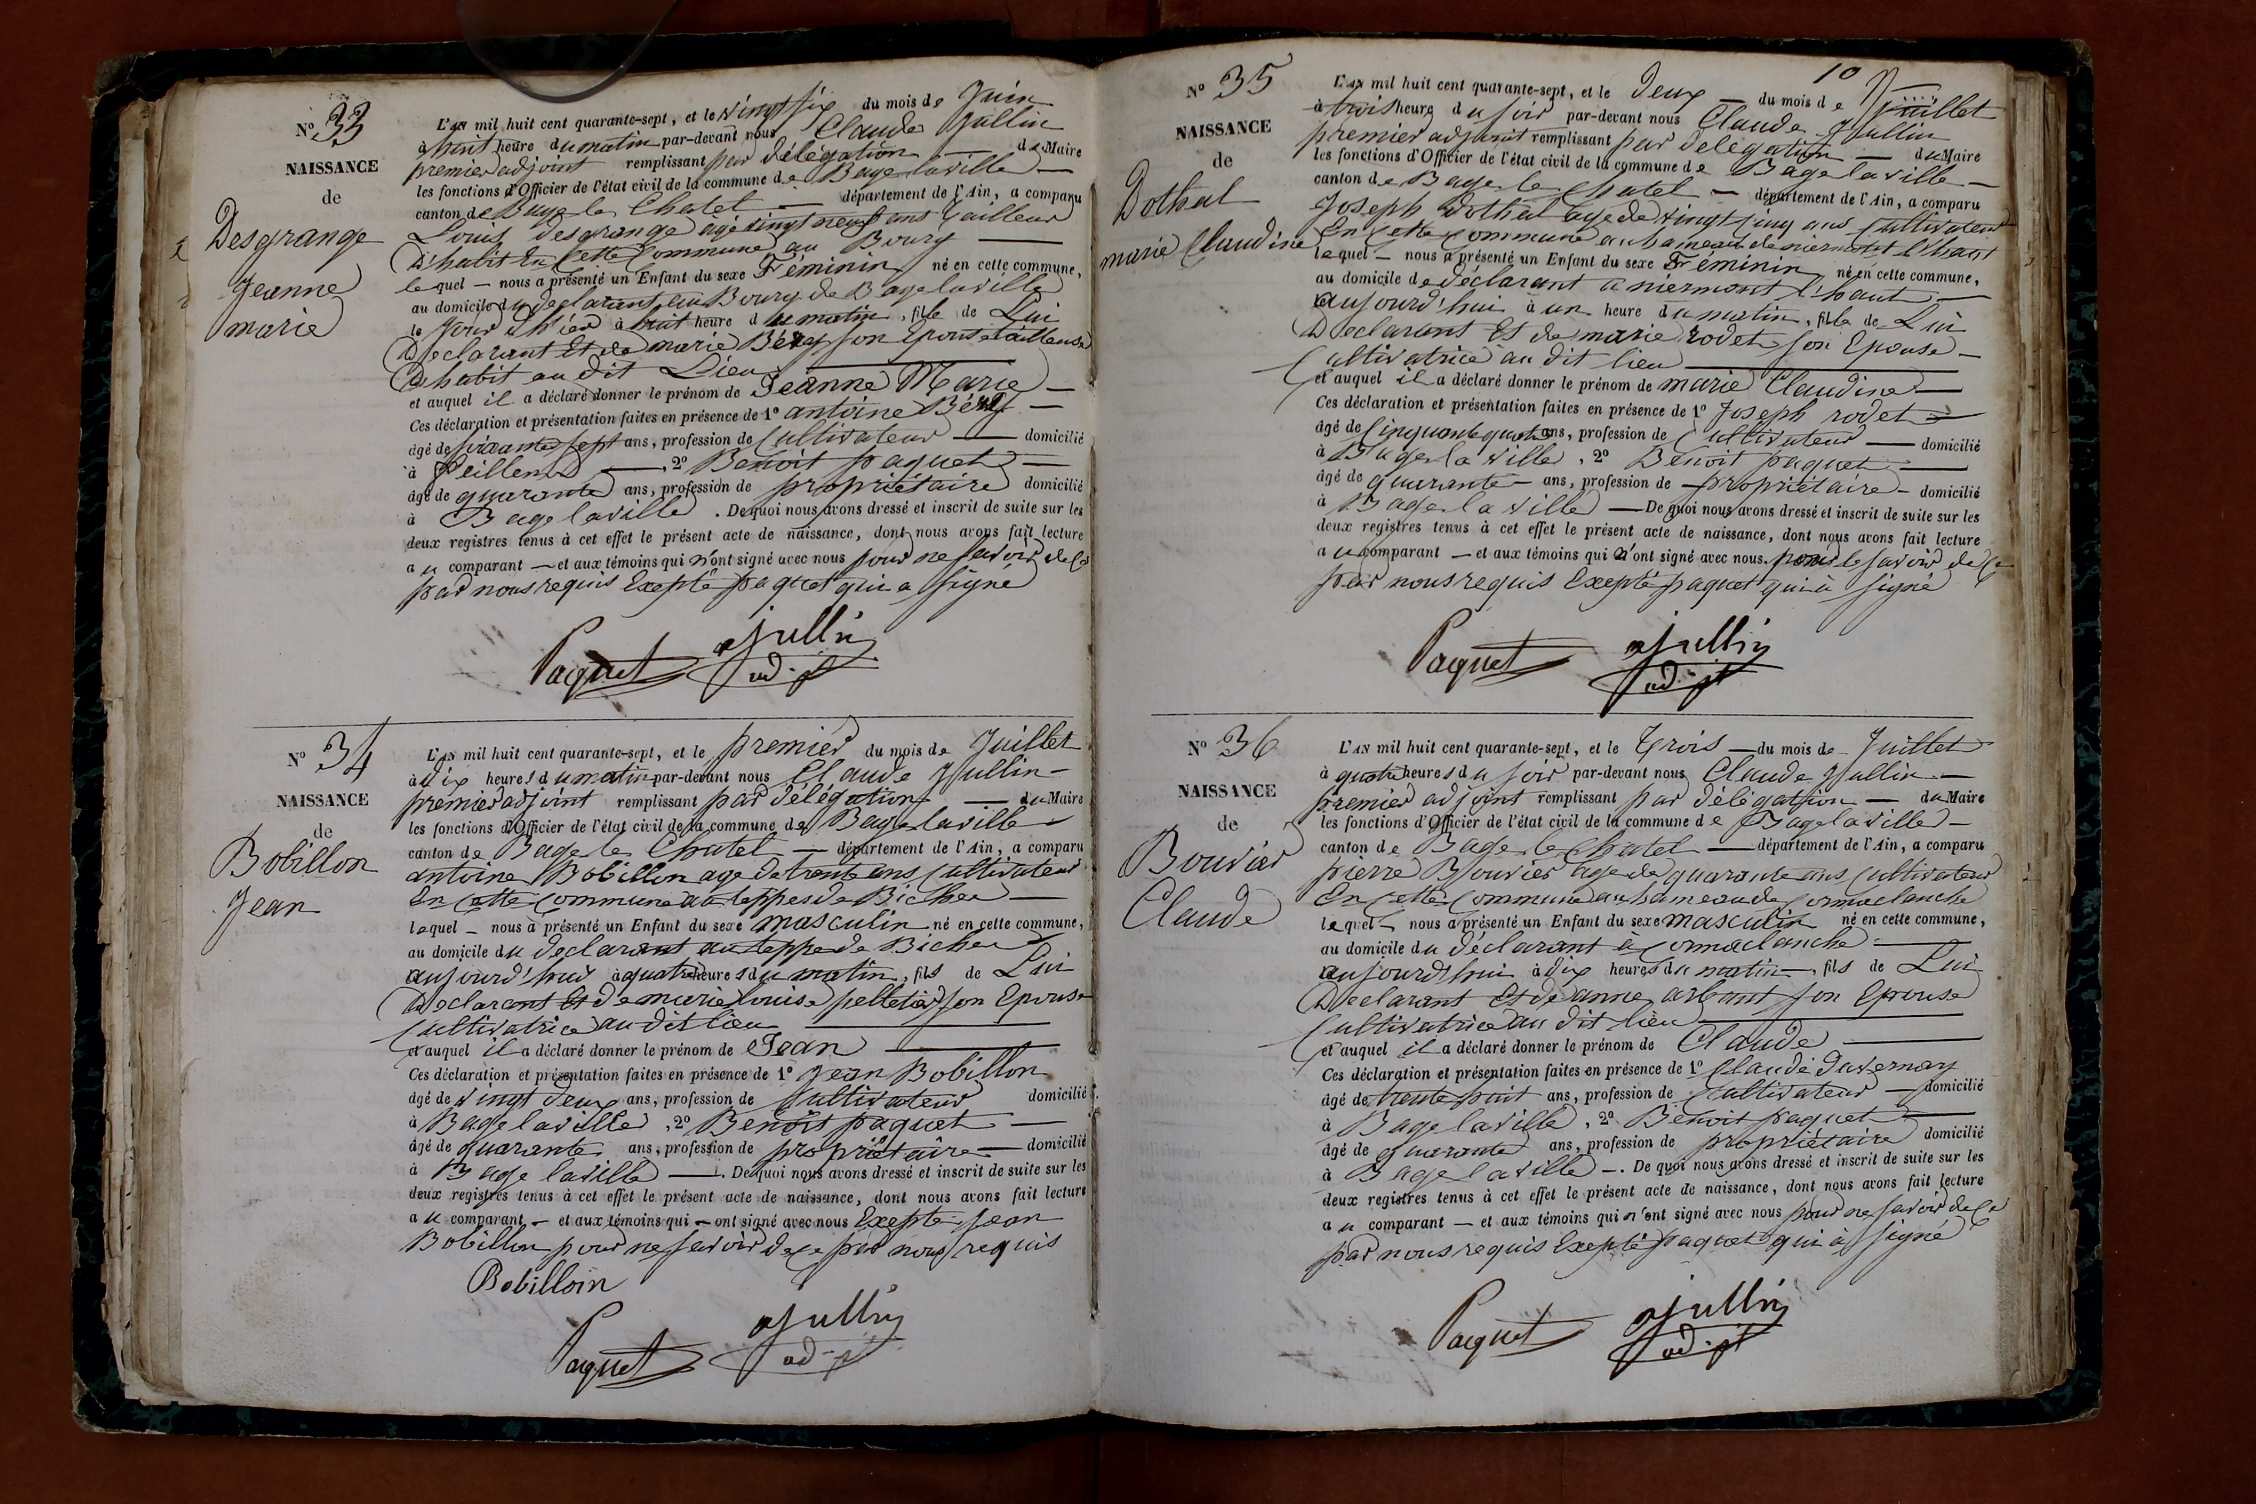 N° 33
NAISSANCE
de
Desgrange
Jeanne
marie
L'AN mil huit cent quarante-sept, et le vingt six du mois de Juin
à huit heure du matin par-devant nous Claude Jullin
premier adjoint remplissant par délégation — du Maire
les fonctions d'Officier de l'état civil de la commune de Bage la ville —
canton de Bage le Chatel — département de l'Ain, a comparu
Louis Desgrange agé vingt neuf ans tailleur
D'habit en cette commune au Bourg —
lequel — nous a présenté un Enfant du sexe Féminin né en cette commune,
au domicile du declarant au Bourg de Bage laville
le jour d'hier à huit heure du matin, fille de Lui
Declarant Et de marie Bérez son Epouse tailleuse
D'habit au dit Lieu —
et auquel il a déclaré donner le prénom de Jeanne Marie —
Ces déclaration et présentation faites en présence de 1° antoine —
âgé de soixante sept ans, profession de Cultivateur — domicilié
à feillens —, 2° Benoit paquet —
âgé de quarante ans, profession de propriétaire domicilié
à Bage laville. De quoi nous avons dressé et inscrit de suite sur les
deux registres tenus à cet effet le présent acte de naissance, dont nous avons fait lecture
au comparant — et aux témoins qui n'ont signé avec nous pour ne savoir de ce
par nous requis Exepté paquet qui a signé
Paquet Jullin
adjt
N° 34
NAISSANCE
de
Bobillon
Jean
L'AN mil huit cent quarante-sept, et le premier du mois de Juillet
à dix heures du matin par-devant nous Claude Jullin —
premier adjoint remplissant par délégation — du Maire
les fonctions d'Officier de l'état civil de la commune de Bage laville
canton de Bage le Chatel — département de l'Ain, a comparu
antoine Bobillon age de trente ans Cultivateur
En cette commune au teppes de Biches —
lequel — nous a présenté un Enfant du sexe masculin né en cette commune,
au domicile du declarant au teppe de Biches
aujourd'hui à quatre heures du matin, fils de Lui
Declarant Et de marie louise pelletier son Epouse
Cultivatrice au dit lieu —
et auquel il a déclaré donner le prénom de Jean —
Ces déclaration et présentation faites en présence de 1° Jean Bobillon
âgé de vingt deux ans, profession de Cultivateur domicilié
à Bage laville, 2° Benoit paquet —
âgé de quarante ans, profession de propriétaire — domicilié
à Bage laville —. De quoi nous avons dressé et inscrit de suite sur les
deux registres tenus à cet effet le présent acte de naissance, dont nous avons fait lecture
au comparant — et aux témoins qui — ont signé avec nous Exepté Jean
Bobillon pour ne savoir de ce par nous requis
Bobilloin
Paquet Jullin
adjt
10
N° 35
NAISSANCE
de
Dothal
marie Claudine
L'AN mil huit cent quarante-sept, et le Deux — du mois de Juillet
à trois heure du soir par-devant nous Claude Jullin
premier adjoint remplissant par délégation — du Maire
les fonctions d'Officier de l'état civil de la commune de Bage laville —
canton de Bage le Chatel — département de l'Ain, a comparu
Joseph Dothal age de vingt cinq ans Cultivateur
En cette commune au hameau de niermont l'haut
lequel — nous a présenté un Enfant du sexe Féminin né en cette commune,
au domicile de déclarant a niermont l'haut —
aujourd'hui à un heure du matin, fille de Lui
Declarant Et de marie rodet son Epouse —
Cultivatrice au dit lieu —
et auquel il a déclaré donner le prénom de marie Claudine —
Ces déclaration et présentation faites en présence de 1° Joseph rodet —
âgé de Cinquante quatre ans, profession de Cultivateur — domicilié
à Bage la ville, 2° Benoit paquet —
âgé de quarante — ans, profession de propriétaire — domicilié
à Bage la ville — De quoi nous avons dressé et inscrit de suite sur les
deux registres tenus à cet effet le présent acte de naissance, dont nous avons fait lecture
au comparant — et aux témoins qui n'ont signé avec nous. pour le savoir de ce
par nous requis Exepté paquet qui à signé
Paquet Jullin
adjt
N° 36
NAISSANCE
de
Bouvier
Claude
L'AN mil huit cent quarante-sept, et le Trois — du mois de Juillet
à quatre heures du soir par-devant nous Claude Jullin —
premier adjoint remplissant par délégation — du Maire
les fonctions d'Officier de l'état civil de la commune de Bage laville —
canton de Bage le Chatel — département de l'Ain, a comparu
pierre Bouvier age de quarante ans Cultivateur
En cette commune au hameau de Cormaclanche
lequel — nous a présenté un Enfant du sexe masculin né en cette commune,
au domicile du déclarant a Cormaclanche —
aujourd'hui à dix heures du matin —, fils de Lui
Declarant Et de anne arbant son Epouse
Cultivatrice au dit lieu —
et auquel il a déclaré donner le prénom de Claude —
Ces déclaration et présentation faites en présence de 1° Claude Duvernay
âgé de trente huit ans, profession de Cultivateur — domicilié
à Bage laville, 2° Benoit paquet —
âgé de quarante ans, profession de propriétaire domicilié
à Bage laville —. De quoi nous avons dressé et inscrit de suite sur les
deux registres tenus à cet effet le présent acte de naissance, dont nous avons fait lecture
au comparant — et aux témoins qui n'ont signé avec nous pour ne savoir de ce
par nous requis Exepté paquet qui à signé
Paquet Jullin
adjt